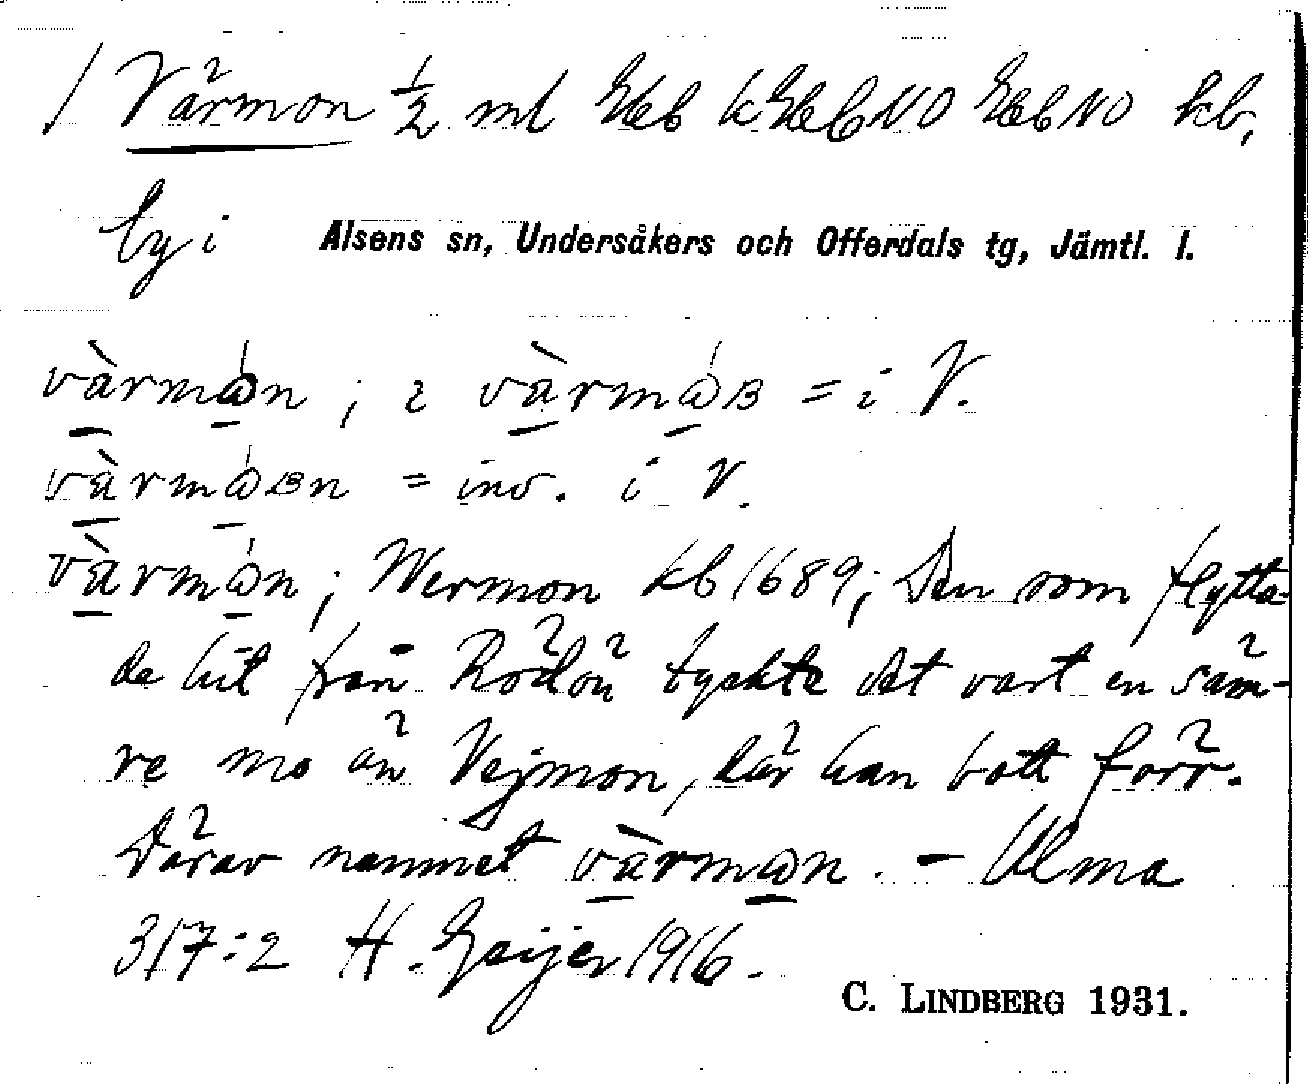 / Värmon ½ ml kb,
by i Alsens sn, Undersåkers och Offerdals tg, Jämtl. l.
vàrmòn ; i vàrmòʙ = i V.
vàrmòʙn = inv. i V.
vàrmòn ; Wermon kb 1689; Den som flytta-
de hit från Rödön tyckte det vart en säm-
re mo än Vejmon, där han bott förr.
Därav namnet vàrmɷn. – Ulma
317:2 H. Geijer 1916.
C. LINDBERG 1931.